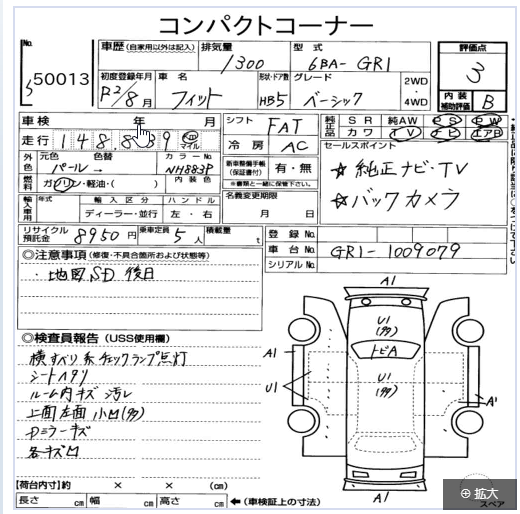 コンパクトコーナー
No.
50013
車歴 (自家用以外は記入)
排気量
1300
型式
6BA- GR1
評価点
3
初度登録年月
R2/8月
車名
フィット
形状・ドア数
HB5
グレード
ベーシック
2WD
・
4WD
内装
補助評価
B
車検
年
月
走行
148,839
km
マイル
シフト
FAT
冷房
AC
純正品
SR
純AW
PS
PW
カワ
TV
ナビ
エアB
セールスポイント
☆純正ナビ・TV
☆バックカメラ
外色
元色
パール
色替
→
カラーNo.
NH883P
燃料
ガソリン・軽油・( )
内装色
新車整備手帳
(保証書付)
有・無
※書類と一緒に保管下さい。
名義変更期限
月
日
輸入車用
年式
輸入区分
ディーラー・並行
ハンドル
左・右
リサイクル
預託金
8950円
乗車定員
5人
積載量
t
登録No.
車台No.
GR1-1009079
シリアルNo.
◎注意事項 (修復・不具合箇所および状態等)
・地図SD 後日
◎検査員報告 (USS使用欄)
横すべり系チェックランプ点灯
シートヘタリ
ルーム内キズ 汚レ
上面左面 小凹(多)
Dミラーキズ
各キズ凹
A1
U1
(多)
トビA
U1
(多)
A1
U1
A'
A1
スペア
【荷台内寸】約 × × (cm)
長さ cm 幅 cm 高さ cm ←(車検証上の寸法)
拡大